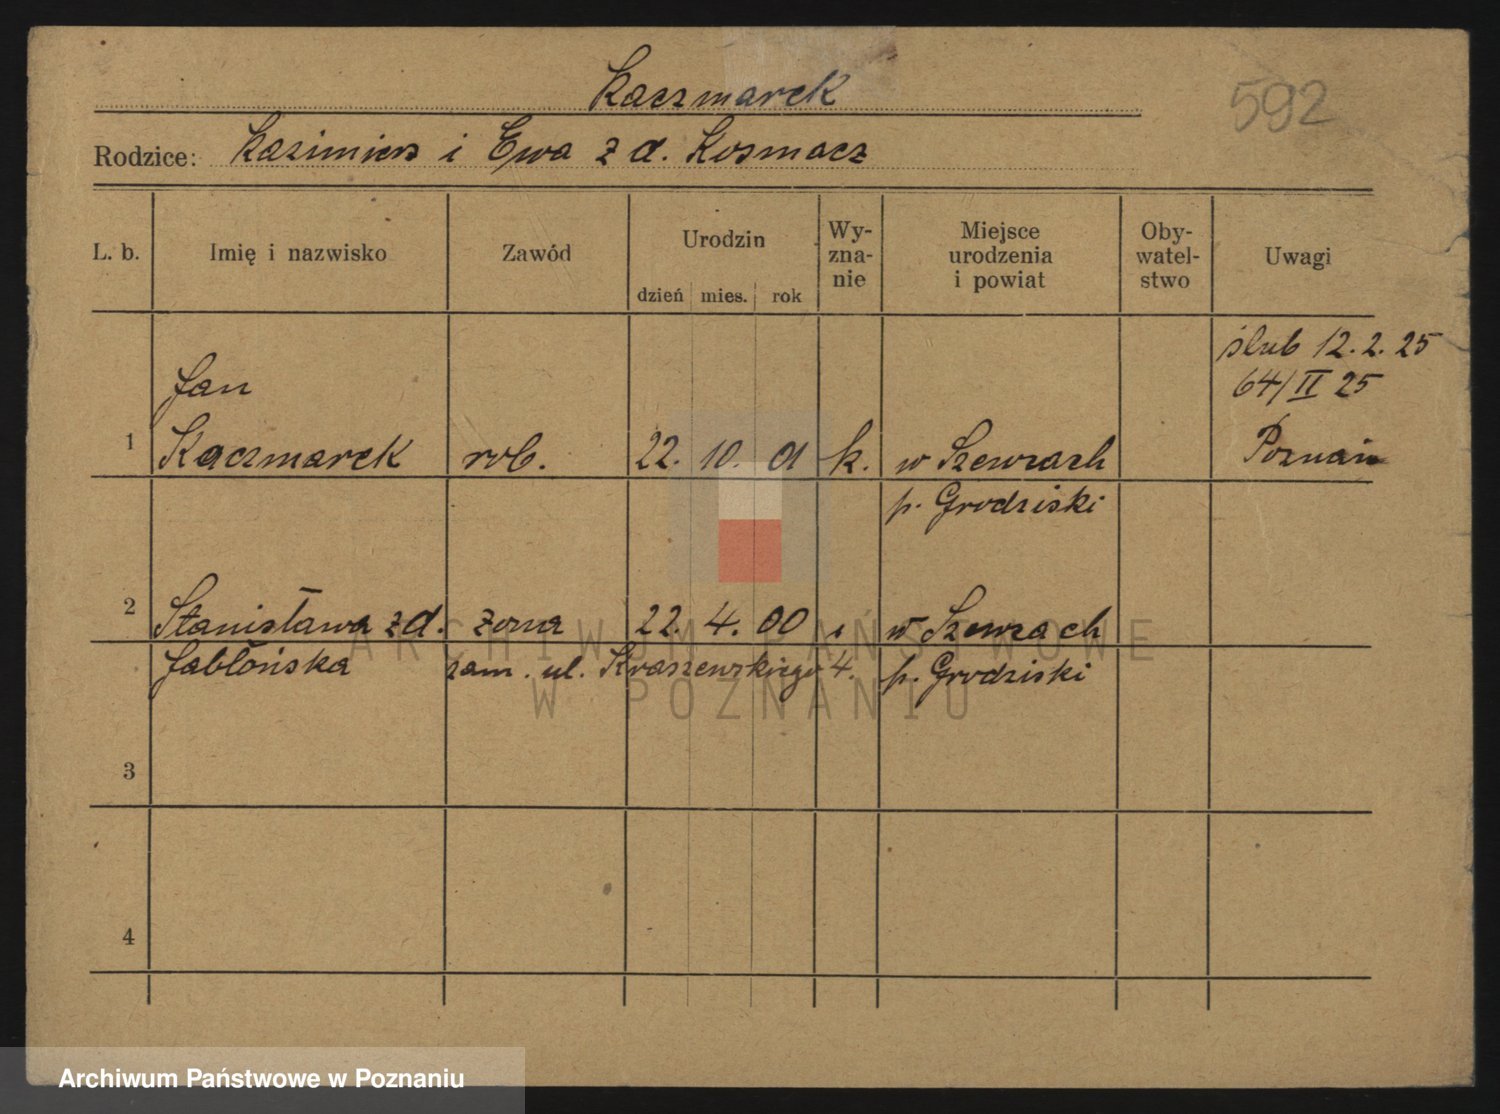 Kaczmarek
592
Rodzice: Kazimierz i Ewa z d. Kosmacz
L. b.
Imię i nazwisko
Zawód
Urodzin
dzień mies. rok
Wy-
zna-
nie
Miejsce
urodzenia
i powiat
Oby-
watel-
stwo
Uwagi
ślub 12. 2. 25
64/II 25
Poznań
1
Jan
Kaczmarek rob. 22. 10. 01 k. w Szewcach
p. Grodziski
2
Stanisława z d. żona 22. 4. 00 w Szewcach
Jabłońska zam. ul. Kraszewskiego 4. p. Grodziski
3
4
ARCHIWUM PAŃSTWOWE
W POZNANIU
Archiwum Państwowe w Poznaniu